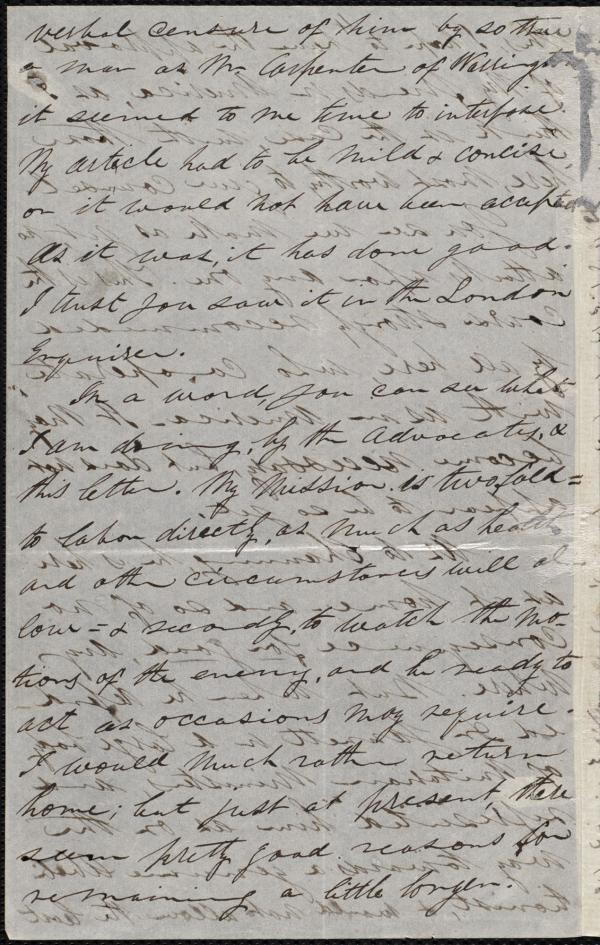 verbal censure of him by so true
a man as Mr Carpenter of Warrington
it seemed to me time to interfere.
My article had to be mild & concise,
or it would not have been accepted
As it was, it has done good.
I trust you saw it in the London
Enquirer.
In a word, you can see what
I am doing, by the Advocates, &
this letter. My Mission is twofold=
to labor directly, as much as health
and other circumstances will al-
low = & secondly, to watch the mo-
tions of the enemy, and be ready to
act as occasions may require.
I would much rather return
home; but just at present, there
seem pretty good reasons for
remaining a little longer.